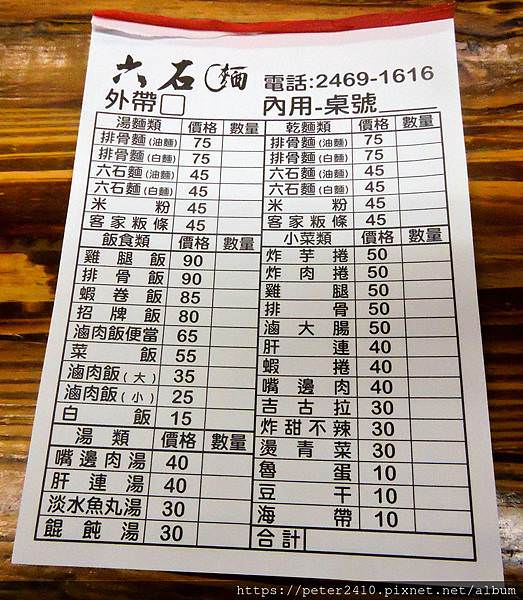 六石麵 電話:2469-1616
外帶□ 內用-桌號
湯麵類 價格 數量
排骨麵(油麵) 75
排骨麵(白麵) 75
六石麵(油麵) 45
六石麵(白麵) 45
米粉 45
客家粄條 45
飯食類 價格 數量
雞腿飯 90
排骨飯 90
蝦卷飯 85
招牌飯 80
滷肉飯便當 65
菜飯 55
滷肉飯(大) 35
滷肉飯(小) 25
白飯 15
湯類 價格 數量
嘴邊肉湯 40
肝連湯 40
淡水魚丸湯 30
餛飩湯 30
乾麵類 價格 數量
排骨麵(油麵) 75
排骨麵(白麵) 75
六石麵(油麵) 45
六石麵(白麵) 45
米粉 45
客家粄條 45
小菜類 價格 數量
炸芋捲 50
炸肉捲 50
雞腿 50
排骨 50
滷大腸 50
肝連 40
蝦捲 40
嘴邊肉 40
吉古拉 30
炸甜不辣 30
燙青菜 30
魯蛋 10
豆干 10
海帶 10
合計
https://peter2410.pixnet.net/album